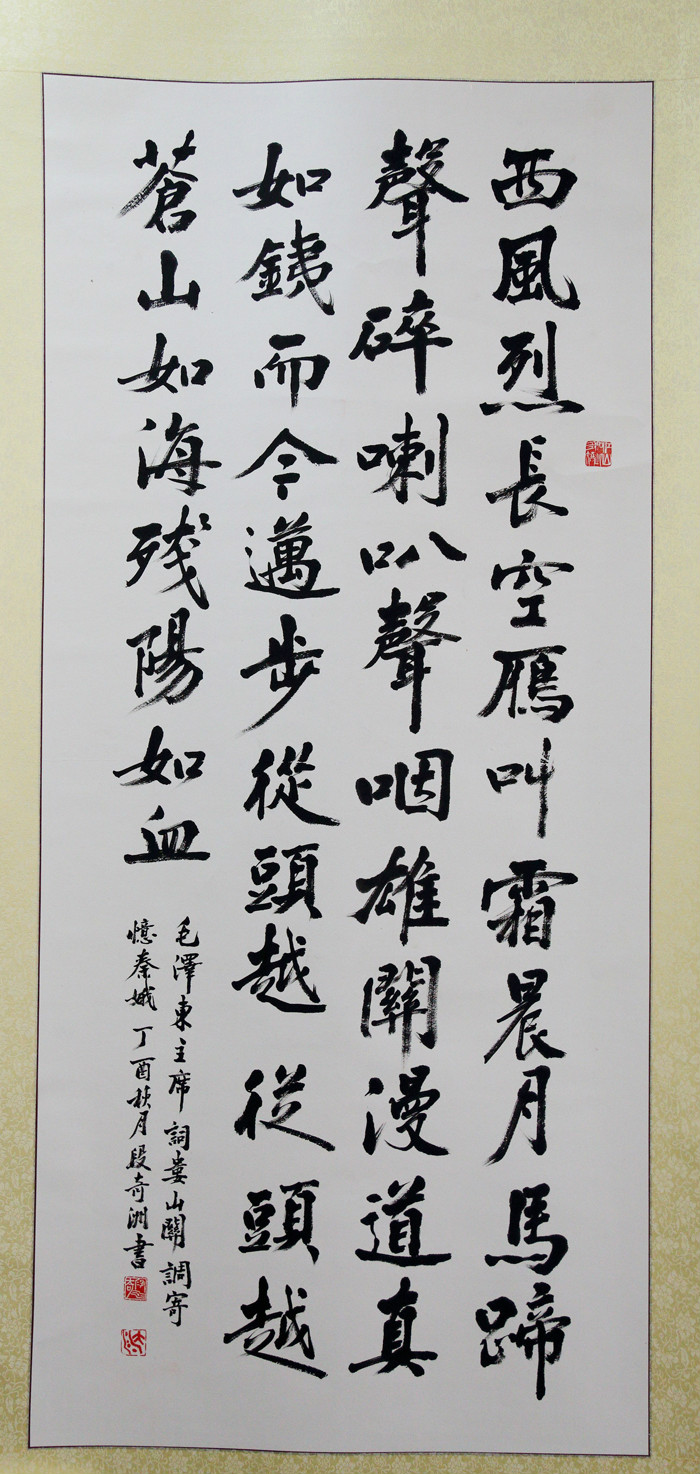 西風烈長空鴈叫霜晨月馬蹄
聲碎喇叭聲咽雄關漫道真
如銕而今邁步從頭越從頭越
蒼山如海殘陽如血
毛澤東主席詞婁山關調寄
憶秦娥丁酉秋月段奇洲書